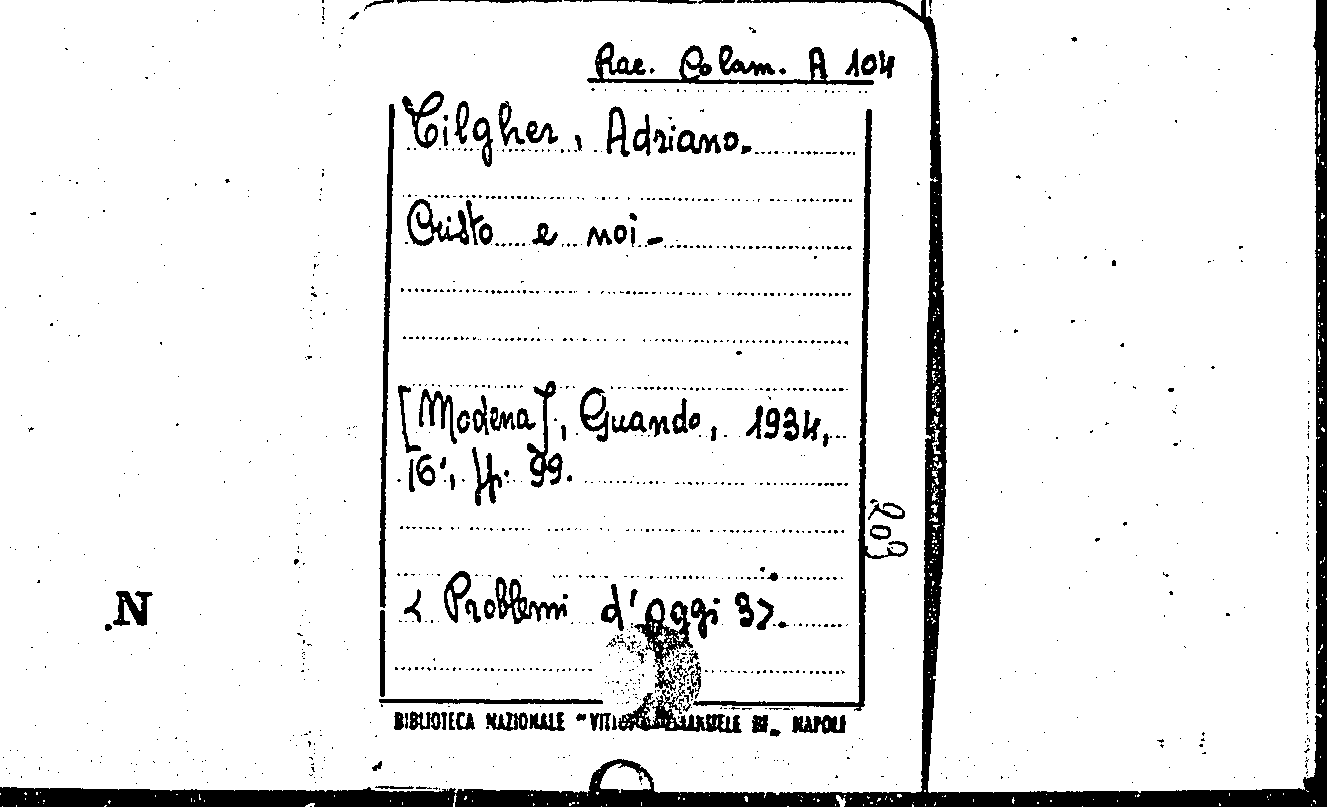 Rac. Colam. A 104
Tilgher, Adriano.
Cristo e noi -
[Modena], Guando, 1934,
16°, pp. 99.
< Problemi d'oggi 3>.
203
N
BIBLIOTECA NAZIONALE "VITTORIO EMANUELE III" NAPOLI